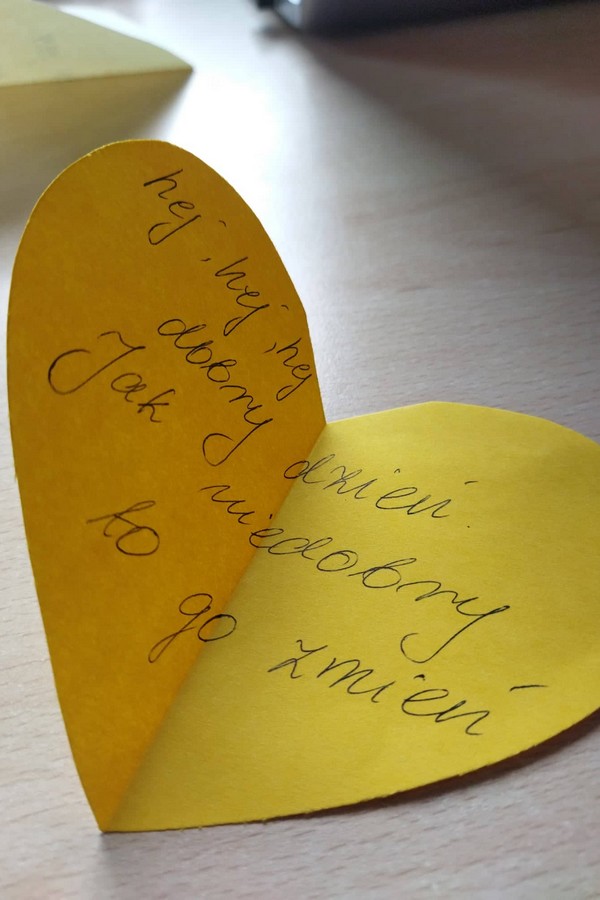 hej, hej, hej
dobry dzień.
Jak niedobry
to go zmień